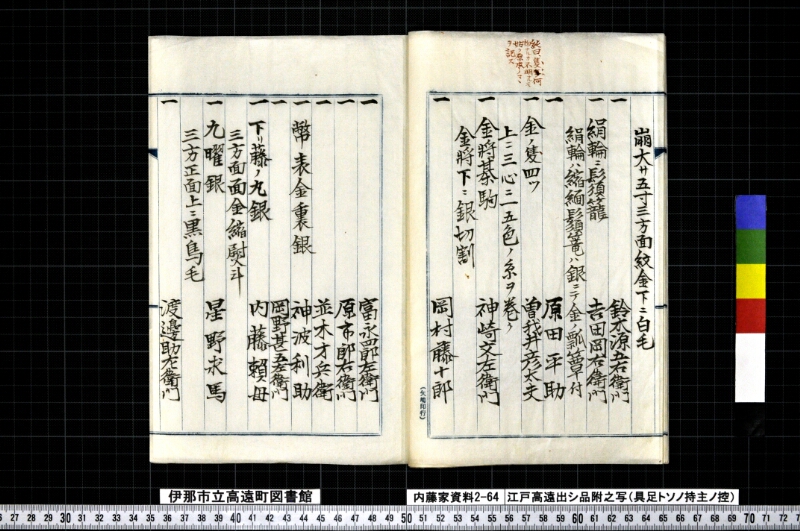 崩大サ五寸三方面紋金下ニ白毛
一　鈴木源五右衛門
一絹輪ニ髭須籠　吉田岡右衛門
絹輪ハ縮緬鬚籠ハ銀ニテ金ノ瓢簞付
一　原田平助
一金ノ隻四ツ　曽我井彦太夫
上ニ三心ニ五色ノ糸ヲ巻ク
一金将棊駒　神崎文左衛門
金将下ニ銀切割
一　岡村藤十郎
一　富永四郎左衛門
一　原市郎右衛門
一　並木才兵衛
一幣表金裏銀　神波利助
一　岡野甚五左衛門
一下リ藤ノ丸銀　内藤頼母
三方面面金縮熨斗
一九曜銀　星野求馬
三方正面上ニ黒鳥毛
一　渡邉助右衛門
伊那市立高遠町図書館
内藤家資料2-64
江戸高遠出シ品附之写(具足トソノ持主ノ控)